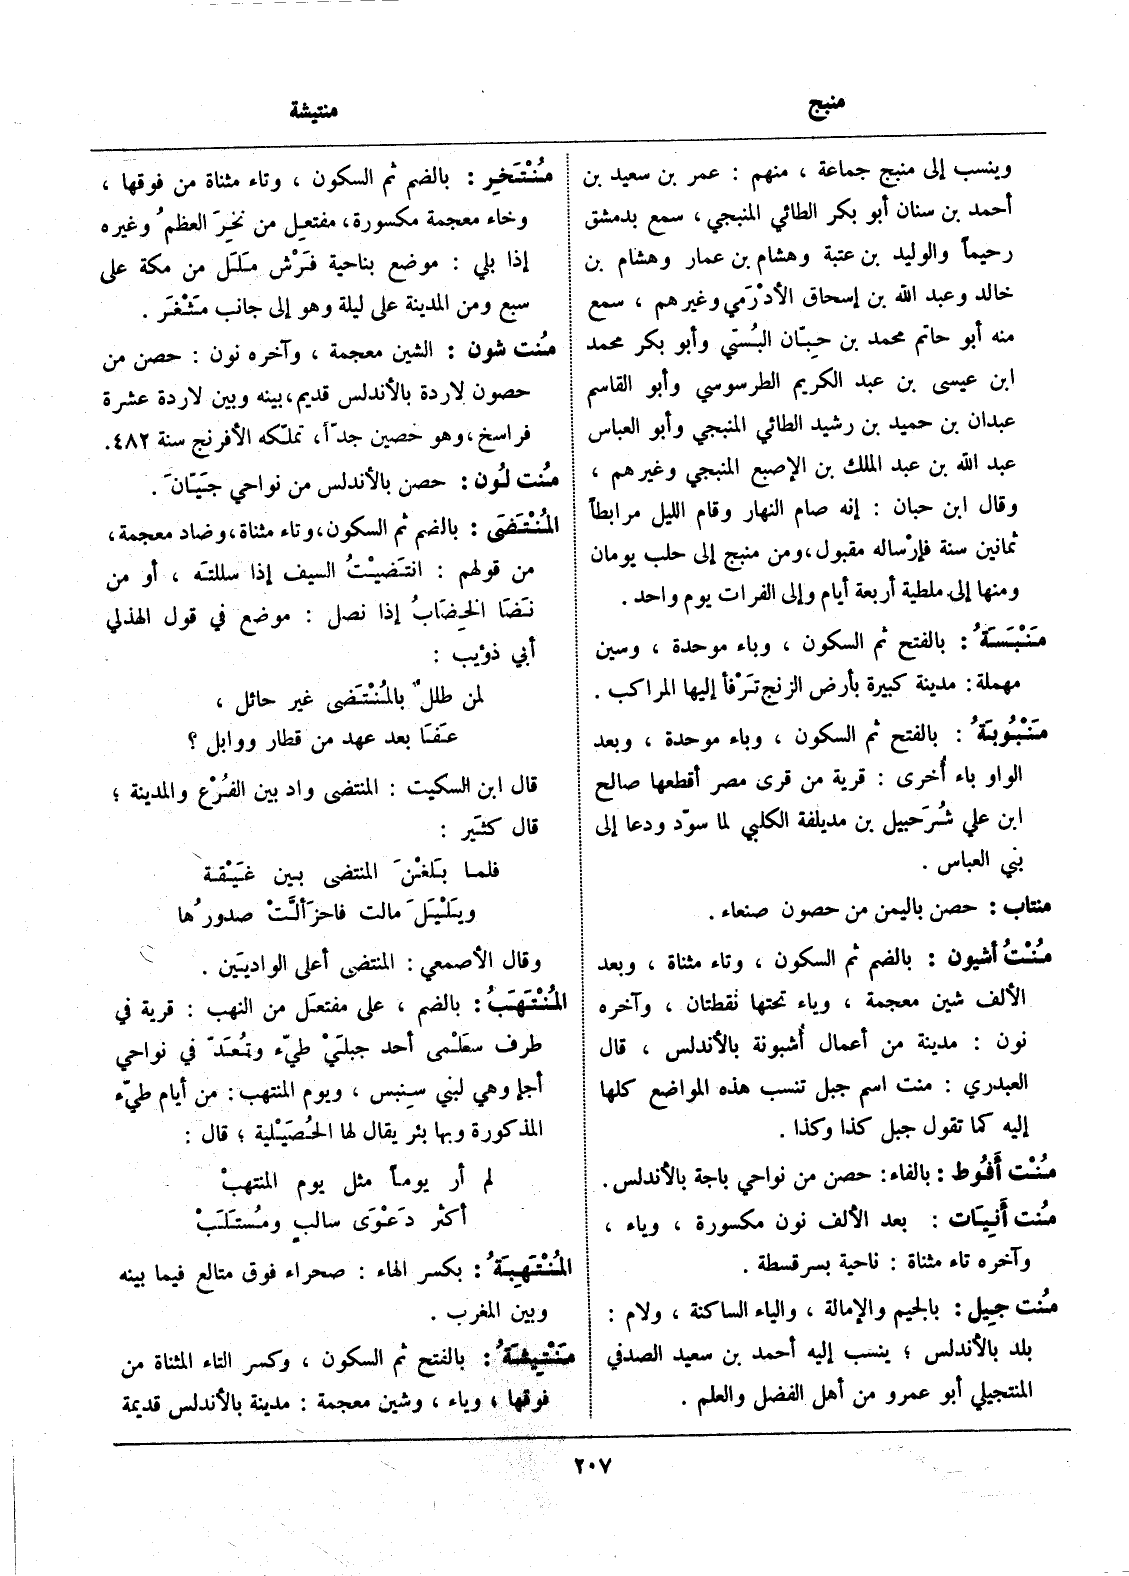 منبج
منتيشة
وينسب إلى منبج جماعة ، منهم : عمر بن سعيد بن
أحمد بن سنان أبو بكر الطائي المنبجي ، سمع بدمشق
رحيماً والوليد بن عتبة وهشام بن عمار وهشام بن
خالد وعبد الله بن إسحاق الأدْرَمي وغيرهم ، سمع
منه أبو حاتم محمد بن حِبّان البُستي وأبو بكر محمد
ابن عيسى بن عبد الكريم الطرسوسي وأبو القاسم
عبدان بن حميد بن رشيد الطائي المنبجي وأبو العباس
عبد الله بن عبد الملك بن الإصبع المنبجي وغيرهم ،
وقال ابن حبان : إنه صام النهار وقام الليل مرابطاً
ثمانين سنة فإرْساله مقبول ، ومن منبج إلى حلب يومان
ومنها إلى ملطية أربعة أيام وإلى الفرات يوم واحد .
مَنْبَسَةُ : بالفتح ثم السكون ، وباء موحدة ، وسين
مهملة : مدينة كبيرة بأرض الزنج تَرْفأ إليها المراكب .
مَنْبُوبَةُ : بالفتح ثم السكون ، وباء موحدة ، وبعد
الواو باء أُخرى : قرية من قرى مصر أقطعها صالح
ابن علي شُرَحبيل بن مديلفة الكلبي لما سوّد ودعا إلى
بني العباس .
منتاب : حصن باليمن من حصون صنعاء .
مُنْتُ أشيون : بالضم ثم السكون ، وتاء مثناة ، وبعد
الألف شين معجمة ، وياء تحتها نقطتان ، وآخره
نون : مدينة من أعمال أُشبونة بالأندلس ، قال
العبدري : منت اسم جبل تنسب هذه المواضع كلها
إليه كما تقول جبل كذا وكذا .
مُنْت أَفُوط : بالفاء : حصن من نواحي باجة بالأندلس .
مُنت أَنِيَات : بعد الألف نون مكسورة ، وياء ،
وآخره تاء مثناة : ناحية بسرقسطة .
مُنت جِيل : بالجيم والإمالة ، والياء الساكنة ، ولام :
بلد بالأندلس ؛ ينسب إليه أحمد بن سعيد الصدفي
المنتجيلي أبو عمرو من أهل الفضل والعلم .
مُنْتَخِر : بالضم ثم السكون ، وتاء مثناة من فوقها ،
وخاء معجمة مكسورة ، مفتعِل من نَخِرَ العظمُ وغيره
إذا بلي : موضع بناحية فَرْش مَلَل من مكة على
سبع ومن المدينة على ليلة وهو إلى جانب مَثْغَر .
مُنت شون : الشين معجمة ، وآخره نون : حصن من
حصون لاردة بالأندلس قديم ، بينه وبين لاردة عشرة
فراسخ ، وهو حصين جدّاً ، تملّكه الأفرنج سنة ٤٨٢ .
مُنت لُون : حصن بالأندلس من نواحي جَيّانَ .
المُنْتَضَى : بالضم ثم السكون ، وتاء مثناة ، وضاد معجمة ،
من قولهم : انتَضيْتُ السيف إذا سللته ، أو من
نَضَا الخِضَابُ إذا نصل : موضع في قول الهذلي
أبي ذؤيب :
لمن طللٌ بالمُنْتَضى غير حائل ،
عَفَا بعد عهد من قطار ووابل ؟
قال ابن السكيت : المنتضى واد بين الفُرْع والمدينة ؛
قال كثيّر :
فلما بَلَغْنَ المنتضى بين غَيْقة
ويَلْيَلَ مالت فاحزَألّتْ صدورُها
وقال الأصمعي : المنتضى أعلى الواديَين .
المُنْتَهَبُ : بالضم ، على مفتعَل من النهب : قرية في
طرف سَلْمى أحد جبلَيْ طيّء وتُعَدّ في نواحي
أجإ وهي لبني سِنبس ، ويوم المنتهب : من أيام طيّء
المذكورة وبها بئر يقال لها الحُصَيْلية ؛ قال :
لم أر يوماً مثل يوم المنتهبْ
أكثر دَعْوَى سالبٍ ومُستَلَبْ
المُنْتَهِبَةُ : بكسر الهاء : صحراء فوق متالع فيما بينه
وبين المغرب .
مَنْتِيشَةُ : بالفتح ثم السكون ، وكسر التاء المثناة من
فوقها ، وياء ، وشين معجمة : مدينة بالأندلس قديمة
٢٠٧